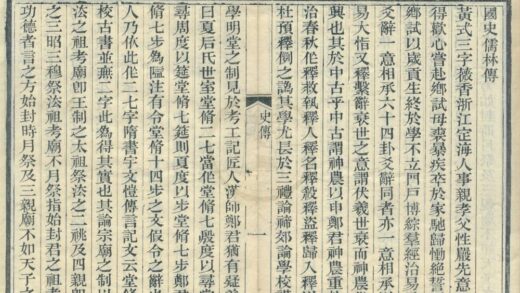 國史儒林傳
黃式三字薇香浙江定海人事親孝父性嚴先意
得歡心嘗赴鄉試母裘暴疾卒於家馳歸慟絕誓
鄉試以歲貢生終於學不立門戶博綜羣經治易
爻辭一意相承六十四卦爻辭同者亦一意相承
易大恉又釋繫辭衰世之意謂伏羲世衰而神農
興也其於中古乎中古謂神農以申鄭君神農重
治春秋作釋救執釋人釋名釋殺釋盜釋歸入釋
杜預釋例之譌其學尤長於三禮論禘郊論學校
史傳
一
學明堂之制見於考工記匠人漢師鄭君猶有疑
曰夏后氏世室堂脩二七當作堂脩七殷度以尋
尋周度以筵堂脩七筵則夏度以步堂脩七步鄭
脩七步為陿注有令堂脩十四步之文假令之辭
人乃依此作二七字隋書宇文愷傳言記文云堂脩
校古書並無二字此為得其實也其論宗廟之制
法之祖考廟卽王制之太祖祭法之二祧及四親
之三昭三穆祭法祖考廟不月祭指始封君之祖考
功德者言之方始封時月祭及三親廟不如天子